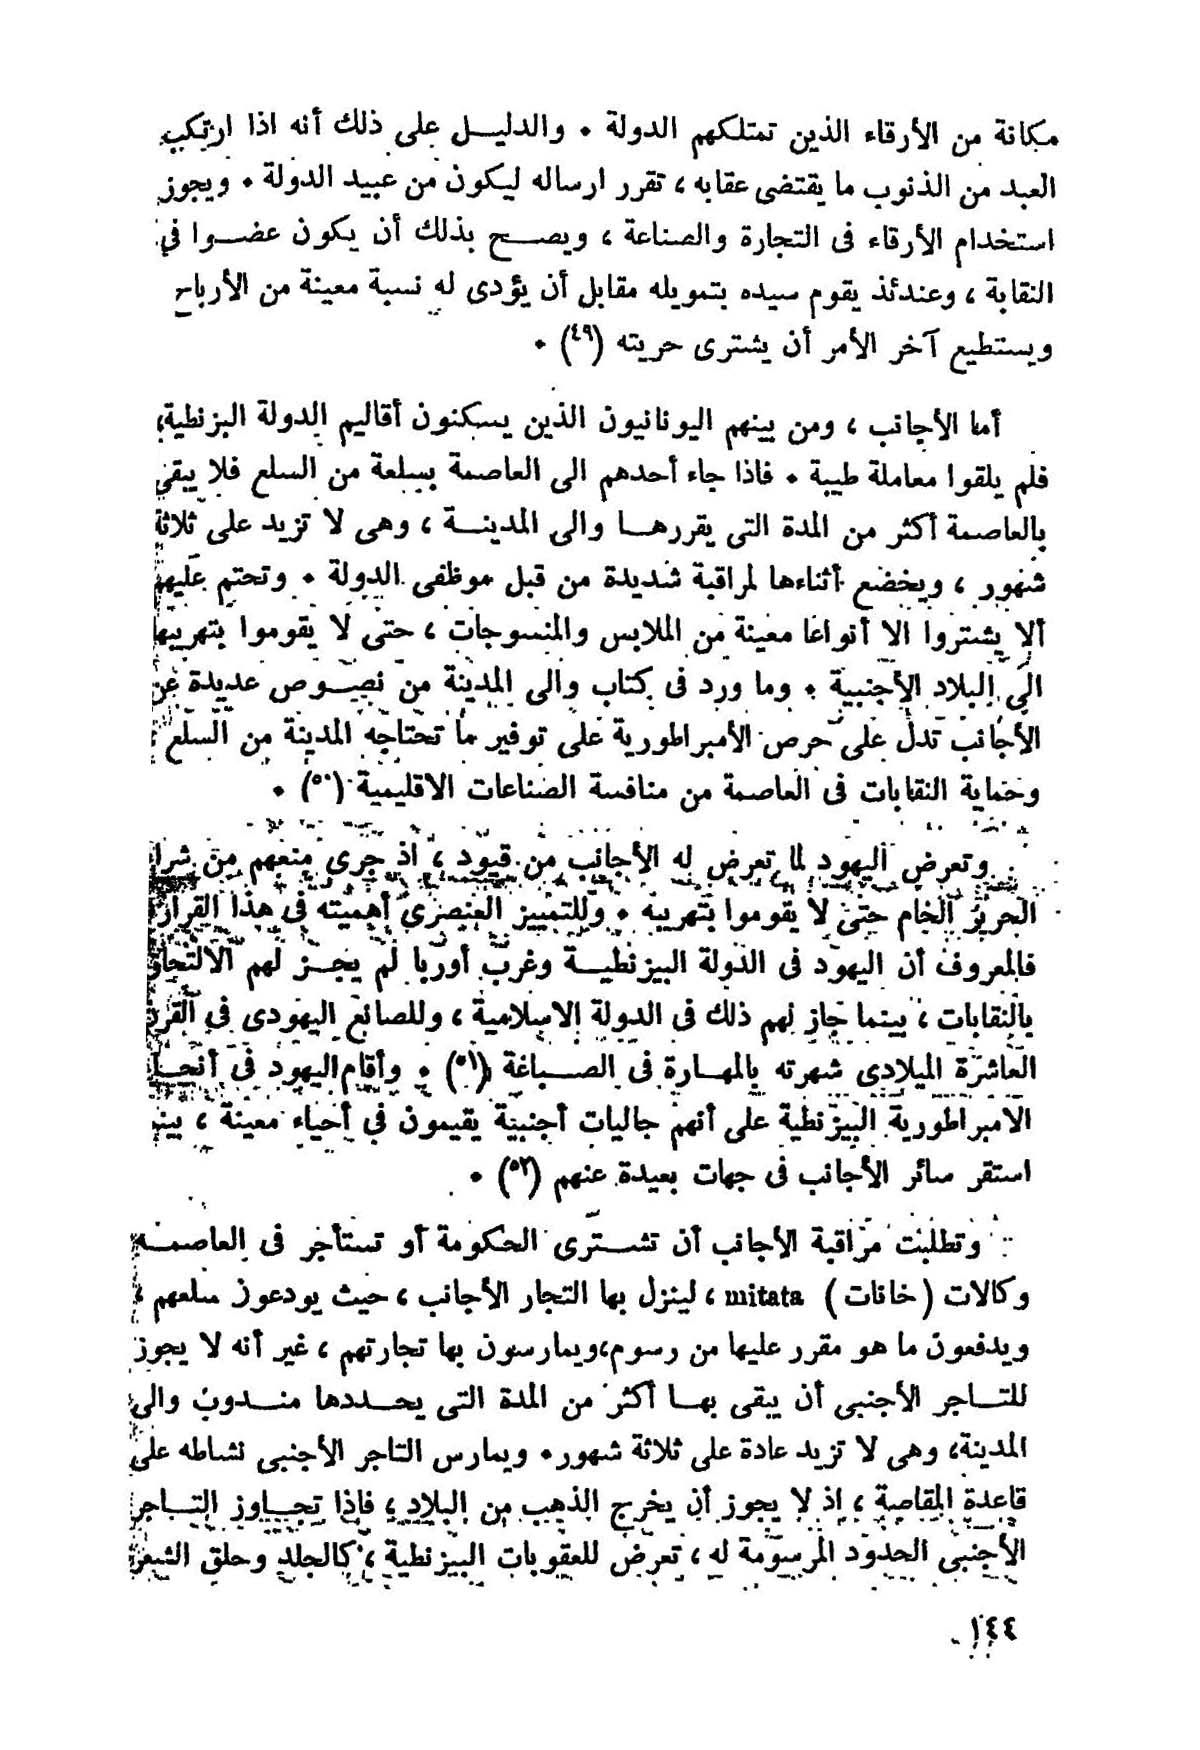 مكانة من الأرقاء الذين تمتلكهم الدولة • والدليل على ذلك أنه اذا ارتكب
العبد من الذنوب ما يقتضى عقابه ، تقرر ارساله ليكون من عبيد الدولة • ويجوز
استخدام الأرقاء فى التجارة والصناعة ، ويصح بذلك أن يكون عضوا في
النقابة ، وعندئذ يقوم سيده بتمويله مقابل أن يؤدى له نسبة معينة من الأرباح
ويستطيع آخر الأمر أن يشترى حريته (٤٩) •
أما الأجانب ، ومن بينهم اليونانيون الذين يسكنون أقاليم الدولة البزنطية،
فلم يلقوا معاملة طيبة • فاذا جاء أحدهم الى العاصمة بسلعة من السلع فلا يبقى
بالعاصمة أكثر من المدة التى يقررها والى المدينة ، وهى لا تزيد على ثلاثة
شهور ، ويخضع أثناءها لمراقبة شديدة من قبل موظفى الدولة • وتحتم عليهم
ألا يشتروا الا أنواعا معينة من الملابس والمنسوجات ، حتى لا يقوموا بتهريبها
الى البلاد الأجنبية • وما ورد فى كتاب والى المدينة من نصوص عديدة عن
الأجانب تدل على حرص الأمبراطورية على توفير ما تحتاجه المدينة من السلع
وحماية النقابات فى العاصمة من منافسة الصناعات الاقليمية (٥٠) •
وتعرض اليهود لما تعرض له الأجانب من قيود ، اذ جرى منعهم من شرا
الحرير الخام حتى لا يقوموا بتهريبه • وللتمييز العنصرى أهميته فى هذا القرار
فالمعروف أن اليهود فى الدولة البيزنطية وغرب أوربا لم يجز لهم الالتحاق
بالنقابات ، بينما جاز لهم ذلك فى الدولة الاسلامية ، وللصانع اليهودى فى القرن
العاشرة الميلادى شهرته بالمهارة فى الصباغة (٥١) • وأقام اليهود فى أنحا
الامبراطورية البيزنطية على أنهم جاليات أجنبية يقيمون في أحياء معينة ، بينم
استقر سائر الأجانب فى جهات بعيدة عنهم (٥٢) •
وتطلبت مراقبة الأجانب أن تشترى الحكومة أو تستأجر فى العاصمة
وكالات (خانات) mitata ، لينزل بها التجار الأجانب ، حيث يودعون سلعهم ،
ويدفعون ما هو مقرر عليها من رسوم،ويمارسون بها تجارتهم ، غير أنه لا يجوز
للتاجر الأجنبى أن يبقى بها أكثر من المدة التى يحددها مندوب والى
المدينة، وهى لا تزيد عادة على ثلاثة شهور• ويمارس التاجر الأجنبى نشاطه على
قاعدة المقاصة ، اذ لا يجوز أن يخرج الذهب من البلاد ، فاذا تجاوز التاجر
الأجنبى الحدود المرسومة له ، تعرض للعقوبات البيزنطية ، كالجلد وحلق الشعر
١٤٤